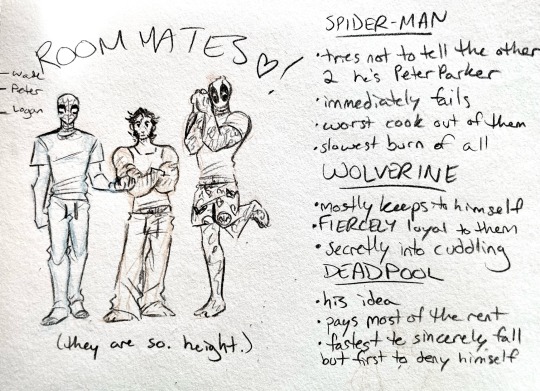 ROOMMATES
Wade
Peter
Logan
(they are so. height.)
SPIDER-MAN
• tries not to tell the other
2 he's Peter Parker
• immediately fails
• worst cook out of them
• slowest burn of all
WOLVERINE
• mostly keeps to himself
• FIERCELY loyal to them
• secretly into cuddling
DEADPOOL
• his idea
• pays most of the rent
• fastest to sincerely fall
but first to deny himself